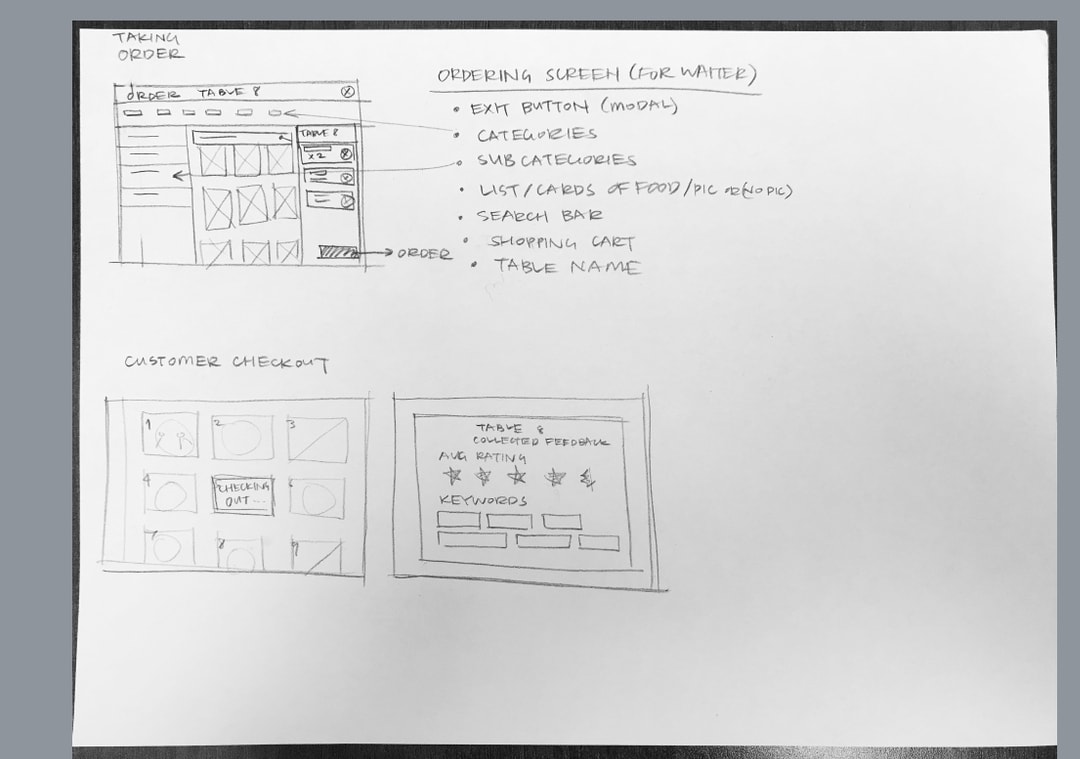 TAKING
ORDER
ORDER TABLE 8
TABLE 8
x2
ORDER
ORDERING SCREEN (FOR WAITER)
• EXIT BUTTON (MODAL)
• CATEGORIES
• SUB CATEGORIES
• LIST/CARDS OF FOOD/PIC OR (NO PIC)
• SEARCH BAR
• SHOPPING CART
• TABLE NAME
CUSTOMER CHECKOUT
1 2 3
4 CHECKING
OUT... 6
7 8 9
TABLE 8
COLLECTED FEEDBACK
AVG RATING
KEYWORDS